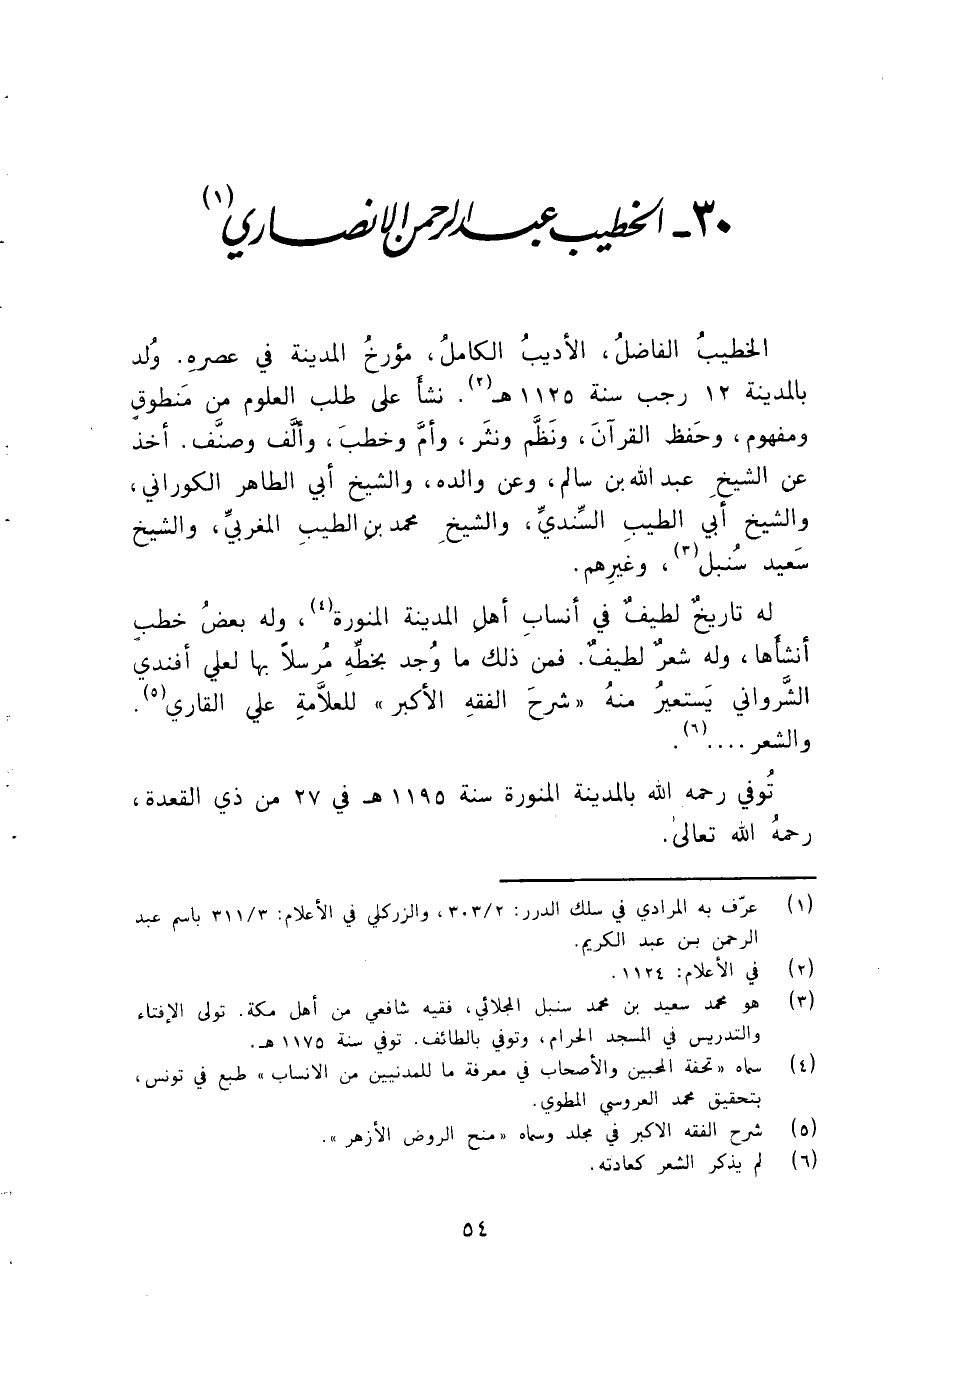 ٣٠ـ الخطيب عبد الرحمن الانصاري(١)
الخطيبُ الفاضلُ، الأديبُ الكاملُ، مؤرخُ المدينة في عصرهِ. وُلد
بالمدينة ١٢ رجب سنة ١١٢٥ هـ(٢). نشأَ على طلب العلوم من مَنطوقٍ
ومفهوم، وحَفظ القرآنَ، ونَظَّم ونثَر، وأمَّ وخطبَ، وألَّف وصنَّف. أخذ
عن الشيخِ عبد الله بن سالم، وعن والده، والشيخ أبي الطاهر الكوراني،
والشيخ أبي الطيبِ السِّنديِّ، والشيخِ محمد بنِ الطيبِ المغربيِّ، والشيخ
سَعيد سُنبل(٣)، وغيرِهم.
له تاريخٌ لطيفٌ في أنسابِ أهلِ المدينة المنورة(٤)، وله بعضُ خطبٍ
أنشأَها، وله شعرٌ لطيفٌ. فمن ذلك ما وُجد بخطِّهِ مُرسلاً بها لعلي أفندي
الشَّرواني يَستعيرُ منهُ «شرحَ الفقهِ الأكبر» للعلاَّمةِ علي القاري(٥).
والشعر ....(٦).
تُوفي رحمه الله بالمدينة المنورة سنة ١١٩٥ هـ في ٢٧ من ذي القعدة،
رحمهُ الله تعالىٰ.
(١) عرّف به المرادي في سلك الدرر: ٣٠٣/٢، والزركلي في الأعلام: ٣١١/٣ باسم عبد
الرحمن بن عبد الكريم.
(٢) في الأعلام: ١١٢٤.
(٣) هو محمد سعيد بن محمد سنبل المجلائي، فقيه شافعي من أهل مكة. تولى الإفتاء
والتدريس في المسجد الحرام، وتوفي بالطائف. توفي سنة ١١٧٥ هـ.
(٤) سماه «تحفة المحبين والأصحاب في معرفة ما للمدنيين من الانساب» طبع في تونس،
بتحقيق محمد العروسي المطوي.
(٥) شرح الفقه الاكبر في مجلد وسماه «منح الروض الأزهر».
(٦) لم يذكر الشعر كعادته.
٥٤